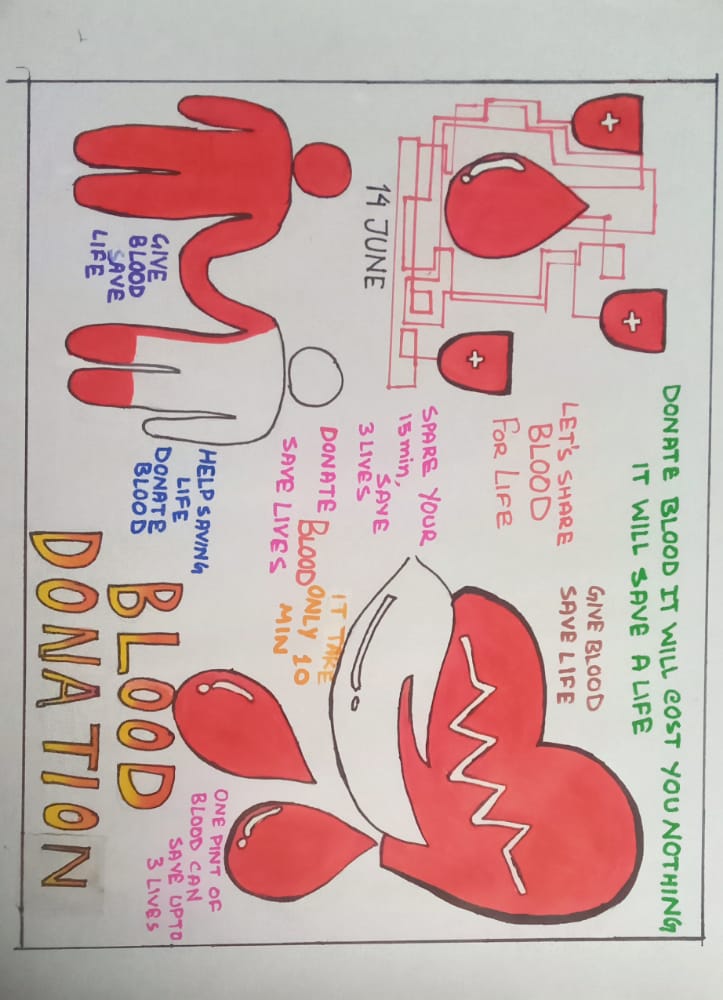 DONATE BLOOD IT WILL COST YOU NOTHING
IT WILL SAVE A LIFE
LET'S SHARE
BLOOD
FOR LIFE
GIVE BLOOD
SAVE LIFE
14 JUNE
SPARE YOUR
15 min,
SAVE
3 LIVES
DONATE BLOOD
SAVE LIVES
IT TAKE
ONLY 10
MIN
GIVE
BLOOD
SAVE
LIFE
HELP SAVING
LIFE
DONATE
BLOOD
ONE PINT OF
BLOOD CAN
SAVE UPTO
3 LIVES
BLOOD
DONATION